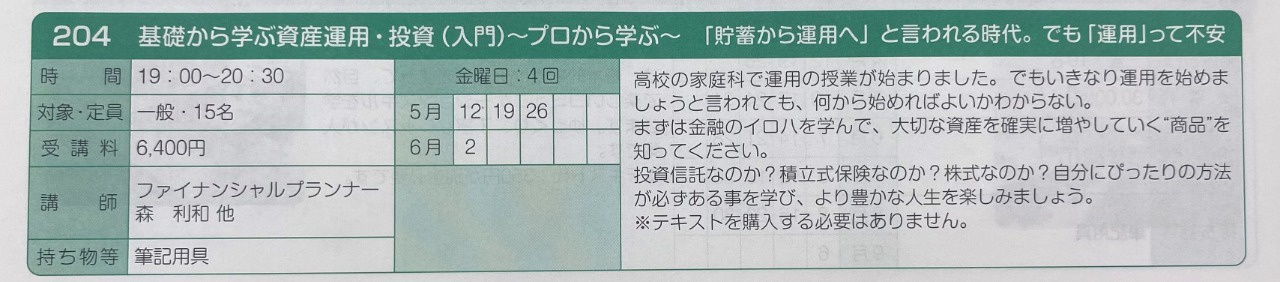 204 基礎から学ぶ資産運用・投資(入門)～プロから学ぶ～ 「貯蓄から運用へ」と言われる時代。でも「運用」って不安
時間 19：00～20：30
対象・定員 一般・15名
受講料 6,400円
講師 ファイナンシャルプランナー
森 利和 他
持ち物等 筆記用具
金曜日：4回
5月 12 19 26
6月 2
高校の家庭科で運用の授業が始まりました。でもいきなり運用を始めま
しょうと言われても、何から始めればよいかわからない。
まずは金融のイロハを学んで、大切な資産を確実に増やしていく“商品”を
知ってください。
投資信託なのか？積立式保険なのか？株式なのか？自分にぴったりの方法
が必ずある事を学び、より豊かな人生を楽しみましょう。
※テキストを購入する必要はありません。